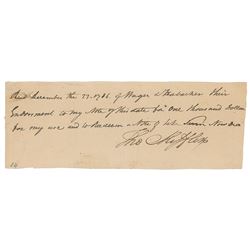 Recd December the 27. 1786. of Wager & Habacker their
Endorsement to my Note of this date for One thousand Dollars
for my use and to Redeem a Note of like Sum Now Due
Tho Mifflin